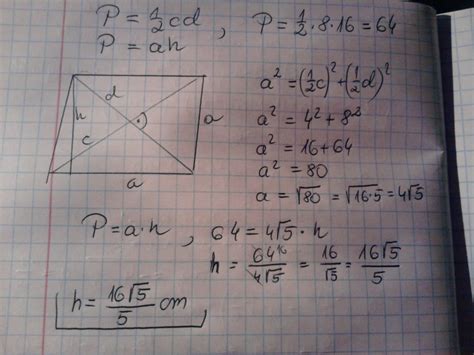 P = 1/2 cd , P = 1/2 · 8 · 16 = 64
P = ah
a² = (1/2 c)² + (1/2 d)²
a² = 4² + 8²
a² = 16 + 64
a² = 80
a = √80 = √16·5 = 4√5
d
h
c
a
a
P = a · h , 64 = 4√5 · h
h = 64¹⁶/4√5 = 16/√5 = 16√5/5
h = 16√5/5 cm